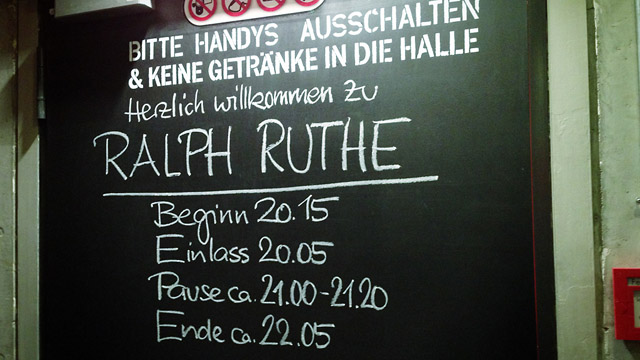 BITTE HANDYS AUSSCHALTEN
& KEINE GETRÄNKE IN DIE HALLE
Herzlich willkommen zu
RALPH RUTHE
Beginn 20.15
Einlass 20.05
Pause ca. 21.00-21.20
Ende ca. 22.05